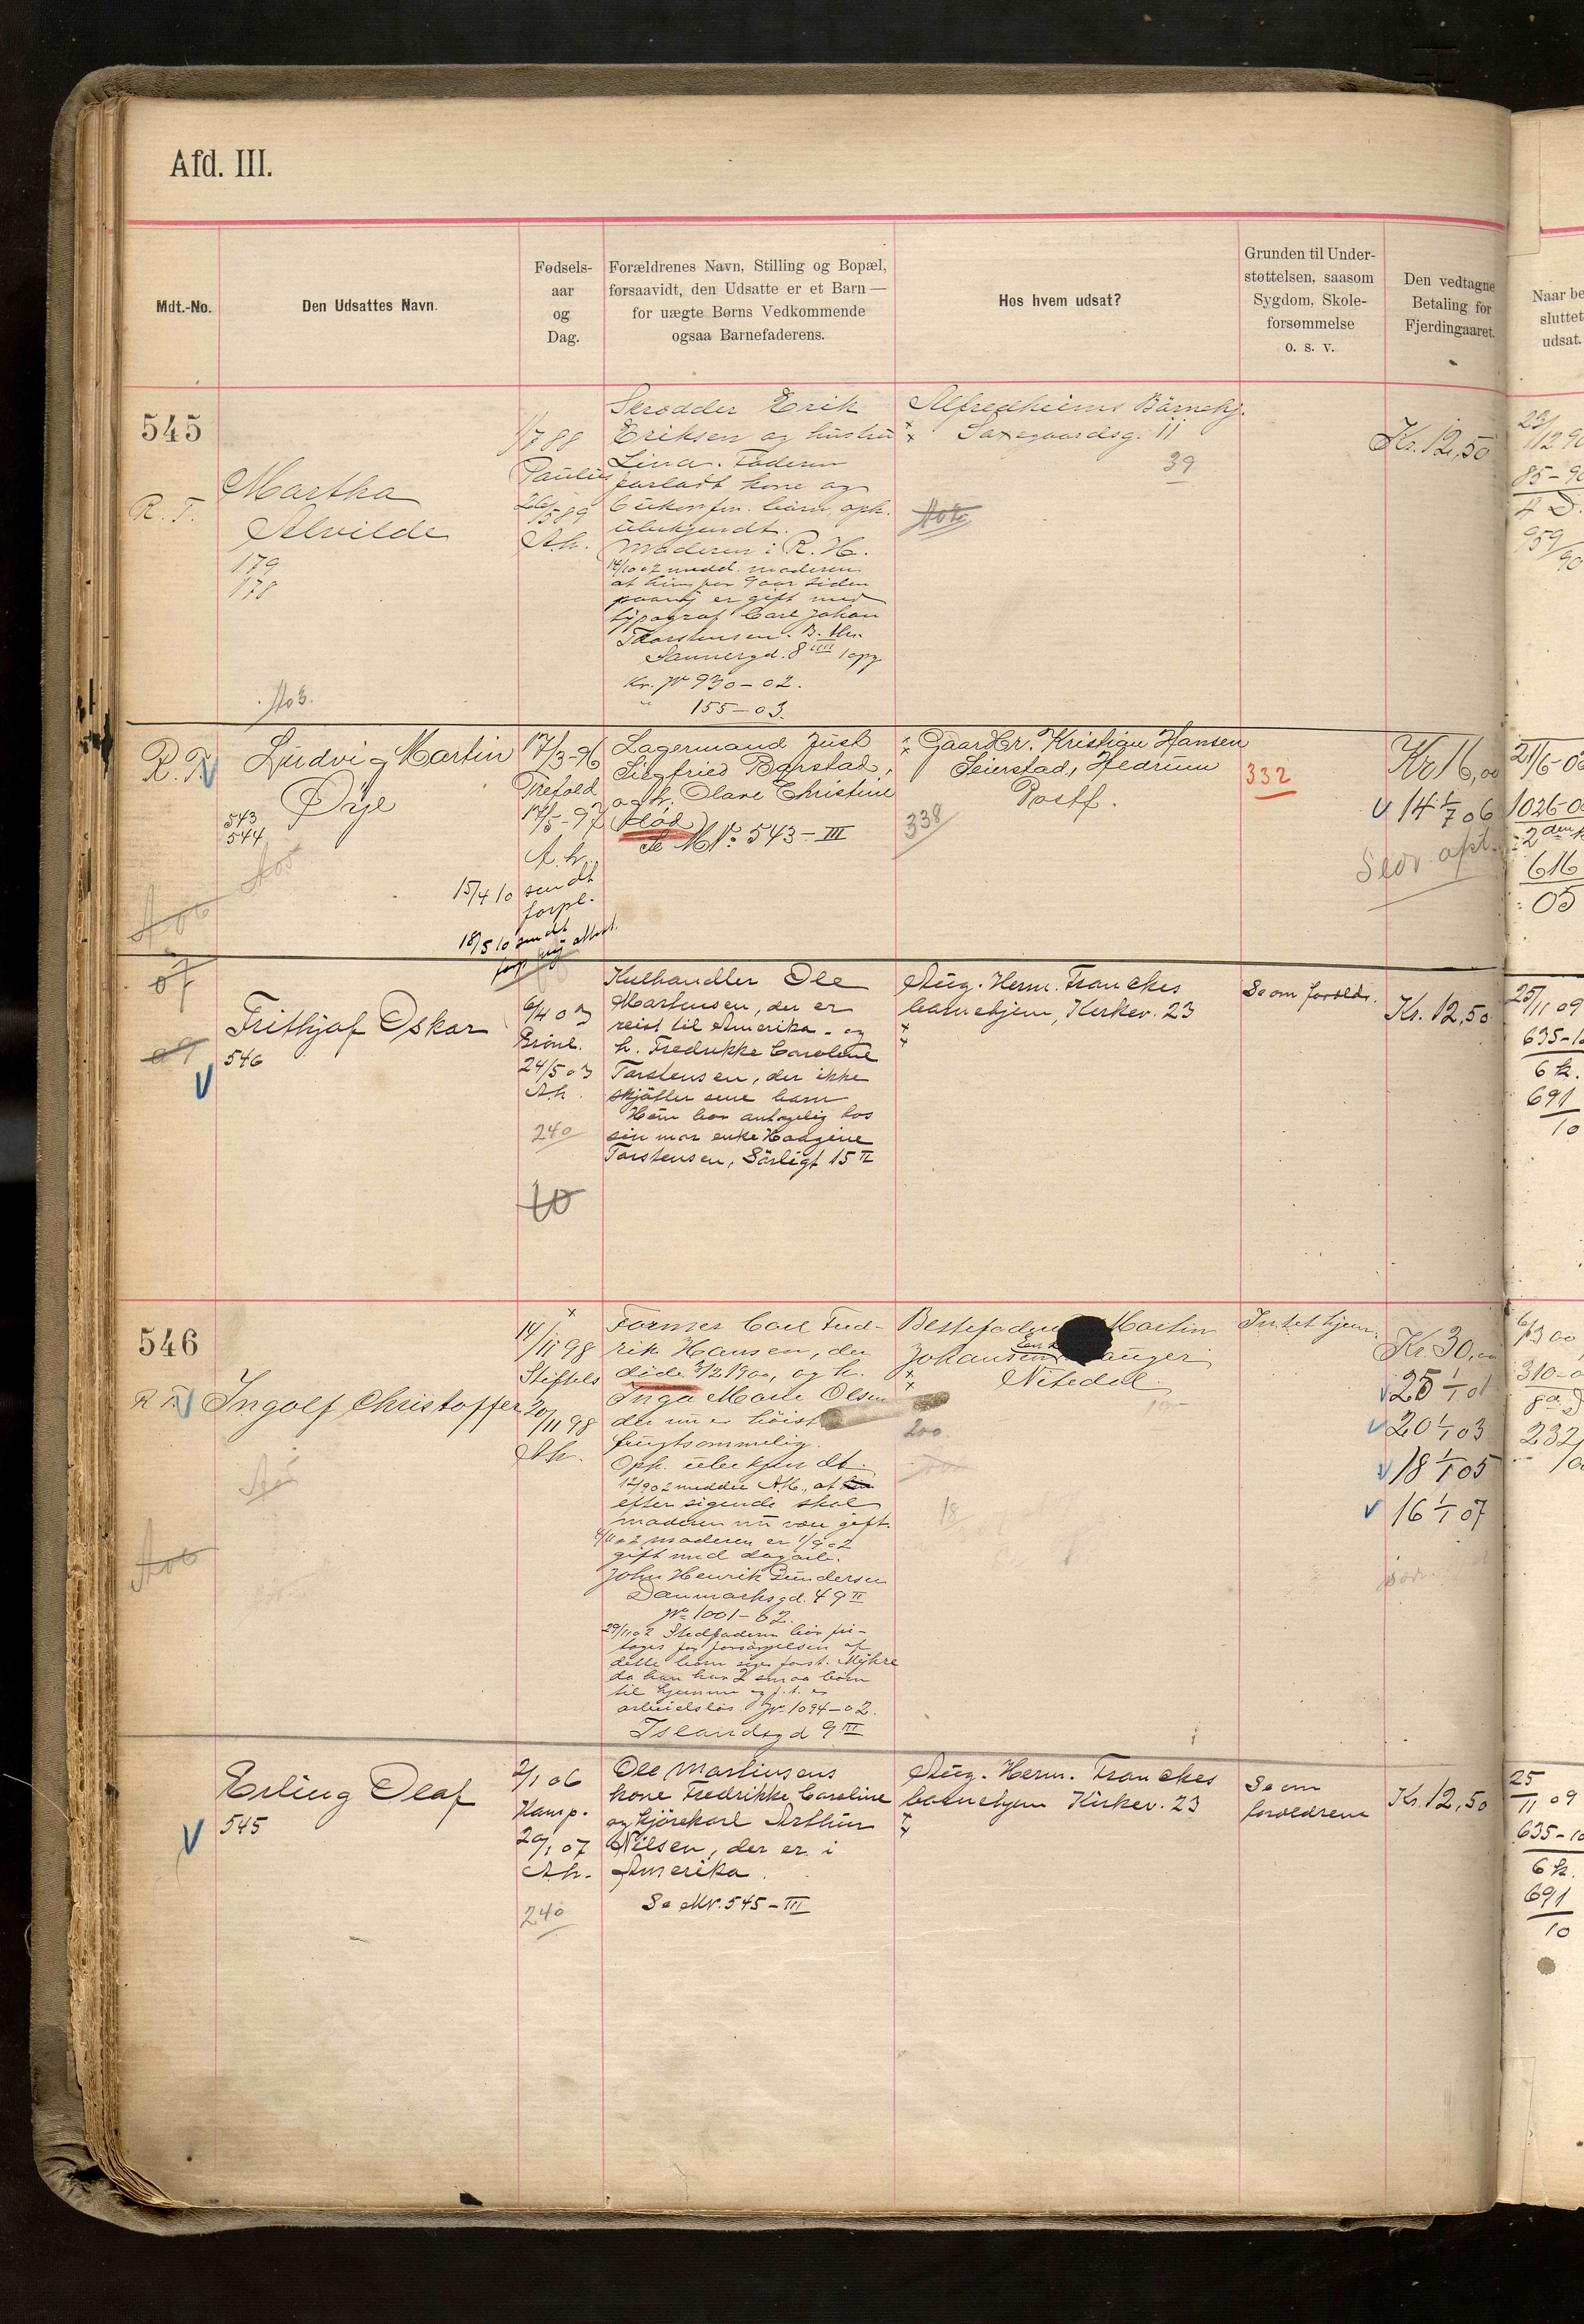 Afd. III.
Mdt.-No.
Den Udsattes Navn.
Fødsels-
aar
og
Dag.
Forældrenes Navn, Stilling og Bopæl,
forsaavidt, den Udsatte er et Barn —
for uægte Børns Vedkommende
ogsaa Barnefaderens.
Hos hvem udsat?
Grunden til Under-
støttelsen, saasom
Sygdom, Skole-
forsømmelse
o. s. v.
Den vedtagne
Betaling for
Fjerdingaaret.
Naar be
sluttet
udsat.
545
R. T.
Martha
Alvilde
179
178
1/7 88
Paulus
26/5 89
A.k.
Skrædder Erik
Eriksen og hustru
Lina. Faderen
forladt kone og
6 ukonfm. børn, oph.
ubekjendt.
Moderen i R. H.
14/10 02 medd. moderen
at hun for 9 aar siden
paany er gift med
typograf Carl Johan
Thorstensen.
Sannergd. 8 IIII opg
Kr. Nr 930-02.
" 155-03.
Alfredheims Børnehj.
Saxegaardsg. 11
39
Kr. 12,50
R. T.
Ludvig Martin
Øye
543
544
17/3-96
Trefold
17/5-97
A.k.
15/4 10 sendt
forpl.
18/5 10 sendt
Lagermand Just
Siegfried Barstad,
og h. Olave Christine
(død)
Se M Nr. 543-III
Gaardbr. Kristian Hansen
Seierstad, Hedrum
Postf.
338
332
Kr 16,00
14 1/7 06
21/6-0
1026-0
616
05
07
09
Frithjof Oskar
546
6/4 03
Grønl.
24/5 03
A.k.
240
10
Kulhandler Ole
Martinsen, der er
reist til Amerika - og
h. Fredrikke Caroline
Torstensen, der ikke
skjøtter sine barn
Hun bor antagelig hos
sin mor enke Haagine
Torstensen, Sørligt 15 II
Aug. Herm. Franckes
barnehjem, Kirkev. 23
Se om foreldr.
Kr. 12,50
25/11 09
635-10
6 k.
691
10
546
R T.
Ingolf Christoffer
14/11 98
Stiftels
20/11 98
A.k.
Former Carl Fred-
rik Hansen, der
døde 3/2 1900, og h.
Inga Marie Olsen
der nu er høist
frugtsommelig.
Oph. ubekjendt.
12/9 02 meddler A.K., at
efter sigende skal
moderen nu være gift.
4/11 02 moderen er 1/9 02
gift med dagarb.
John Henrik Gundersen
Danmarksgd. 49 II
Nr 1001-02.
29/11 02 Stedfaderen bør fri-
tages for forsørgelsen af
dette barn siger forst. Myhre
da han har 2 smaa børn
til hjemme og f. t. er
arbeidsløs. Nr. 1094-02.
Islandsgd 9 III
Bestefaderen Martin
Johansen Hauger
Nitedal
200
18
Intet hjem.
Kr. 30,00
25 1/1 01
20 1/1 03
18 1/1 05
16 1/1 07
310-0
232/
Erling Olaf
545
2/1 06
Kamp.
20/1 07
A.k.
240
Ole Martinsens
kone Fredrikke Caroline
og kjørekarl Arthur
Nilsen, der er i
Amerika.
Se Mr. 545-III
Aug. Herm. Franckes
barnehjem Kirkev. 23
Se om
forældrene
Kr. 12,50
25
11 09
635-10
6 k.
691
10